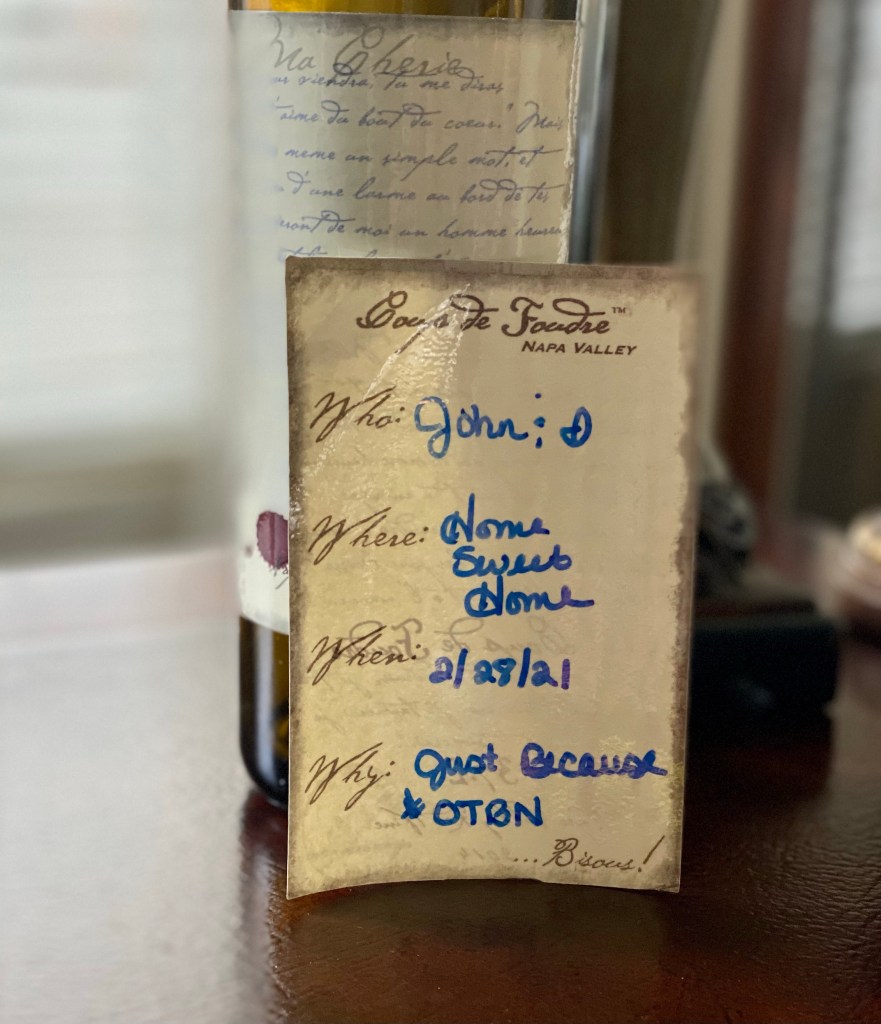 Ma Cherie
viendra, tu me diras
'aime du bout du coeur." Mais
meme un simple mot, et
d'une larme au bord de tes
ront de moi un homme heureu
Coup de Foudre™
NAPA VALLEY
Who: John ; D
Where: Home
Sweet
Home
When: 2/28/21
Why: Just Because
* OTBN
...Bisous!